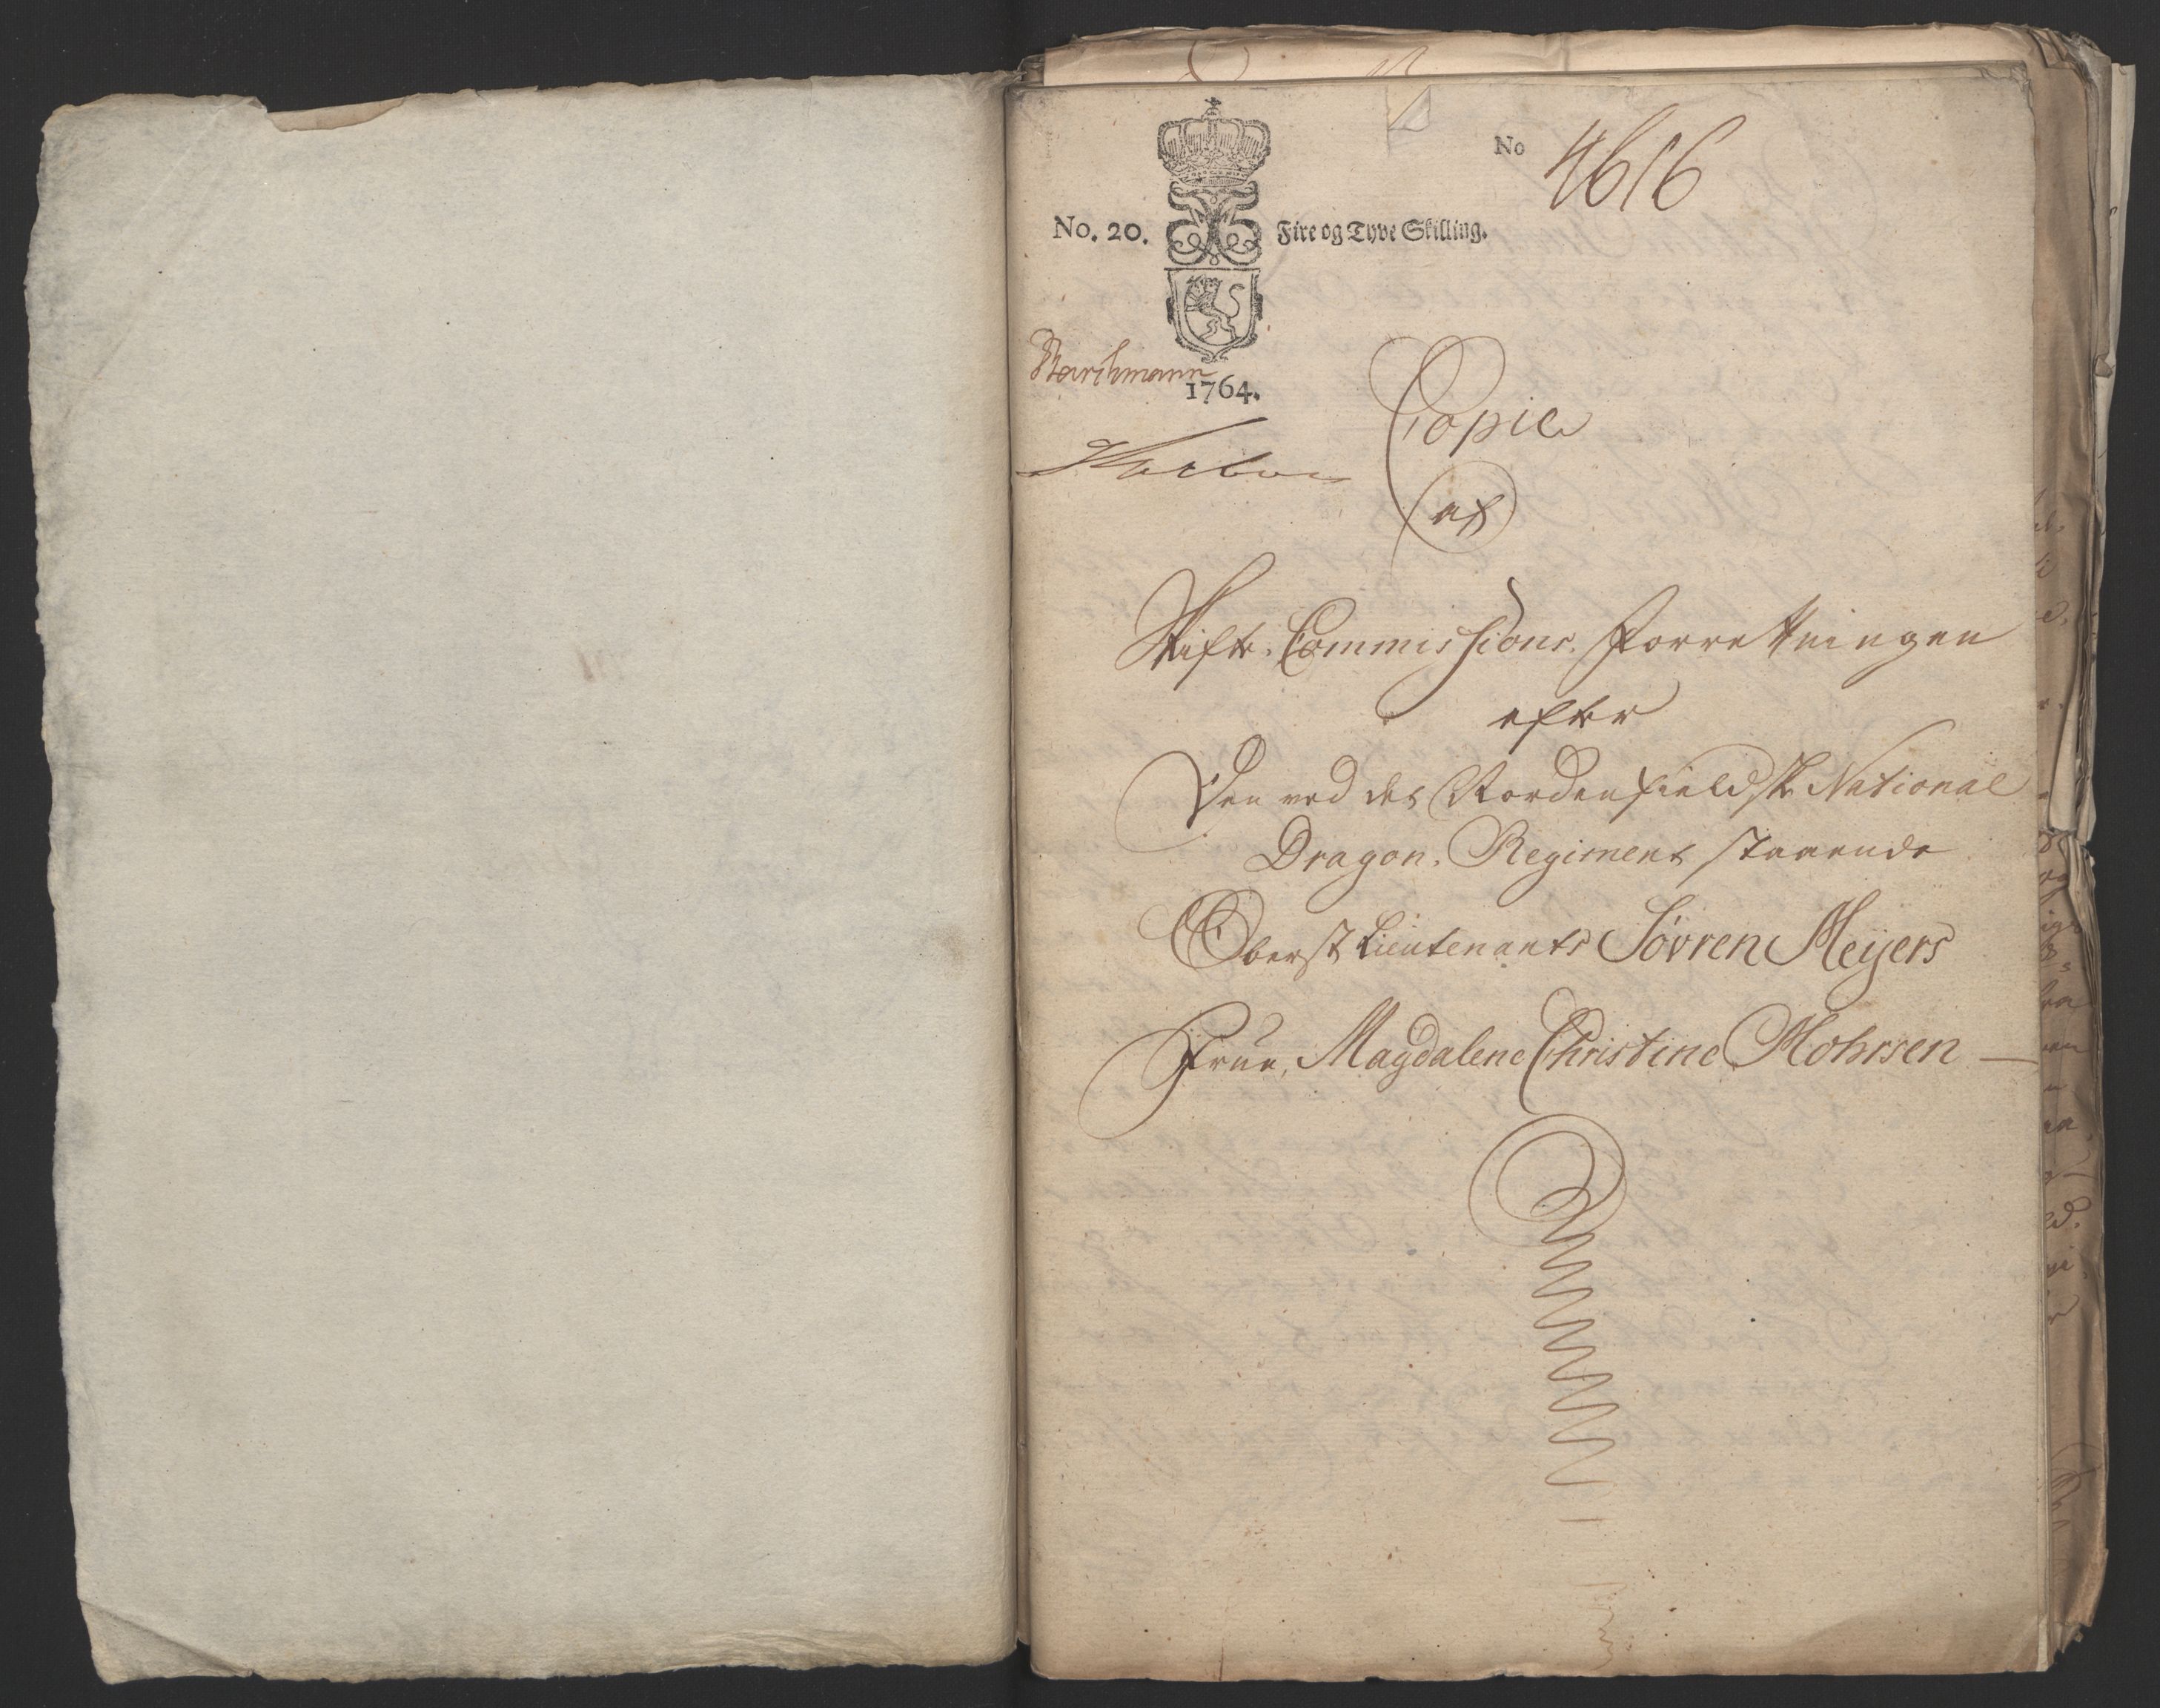 No 4616
No. 20. Fire og Tyve Skilling.
1764.
Copie
af
Skifte-Commissions-Forretningen
efter
Den ved det Nordenfieldske National
Dragon-Regiment staaende
Oberst Lieutenants Søvren Meijers
Frue, Magdalene Christine Mohrsen